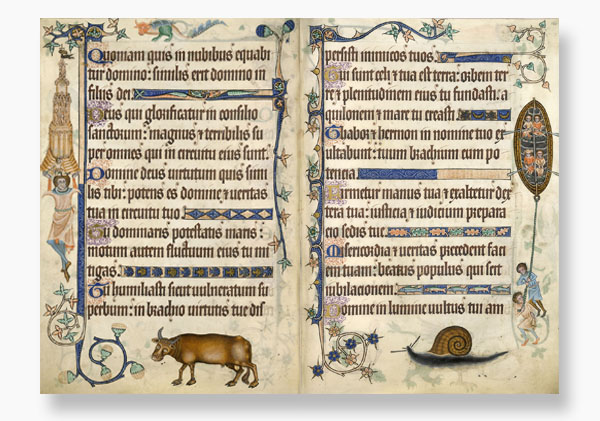 Quoniam quis in nubibus equabi
tur domino: similis erit domino in
filiis dei
Deus qui glorificatur in consilio
sanctorum: magnus & terribilis su
per omnes qui in circuitu eius sunt.
Domine deus virtutum quis simi
lis tibi: potens es domine & veritas
tua in circuitu tuo
Tu dominaris potestatis maris:
motum autem fluctuum eius tu mi
tigas
Tu humiliasti sicut vulneratum su
perbum: in brachio virtutis tue dis
persisti inimicos tuos.
Tui sunt celi & tua est terra: orbem ter
re & plenitudinem eius tu fundasti: a
quilonem & mare tu creasti.
Thabor & hermon in nomine tuo ex
ultabunt: tuum brachium cum po
tencia
Firmetur manus tua & exaltetur dex
tera tua: iusticia & iudicium prepara
cio sedis tue
Misericordia & veritas precedent faci
em tuam: beatus populus qui scit
iubilacionem
Domine in lumine vultus tui am